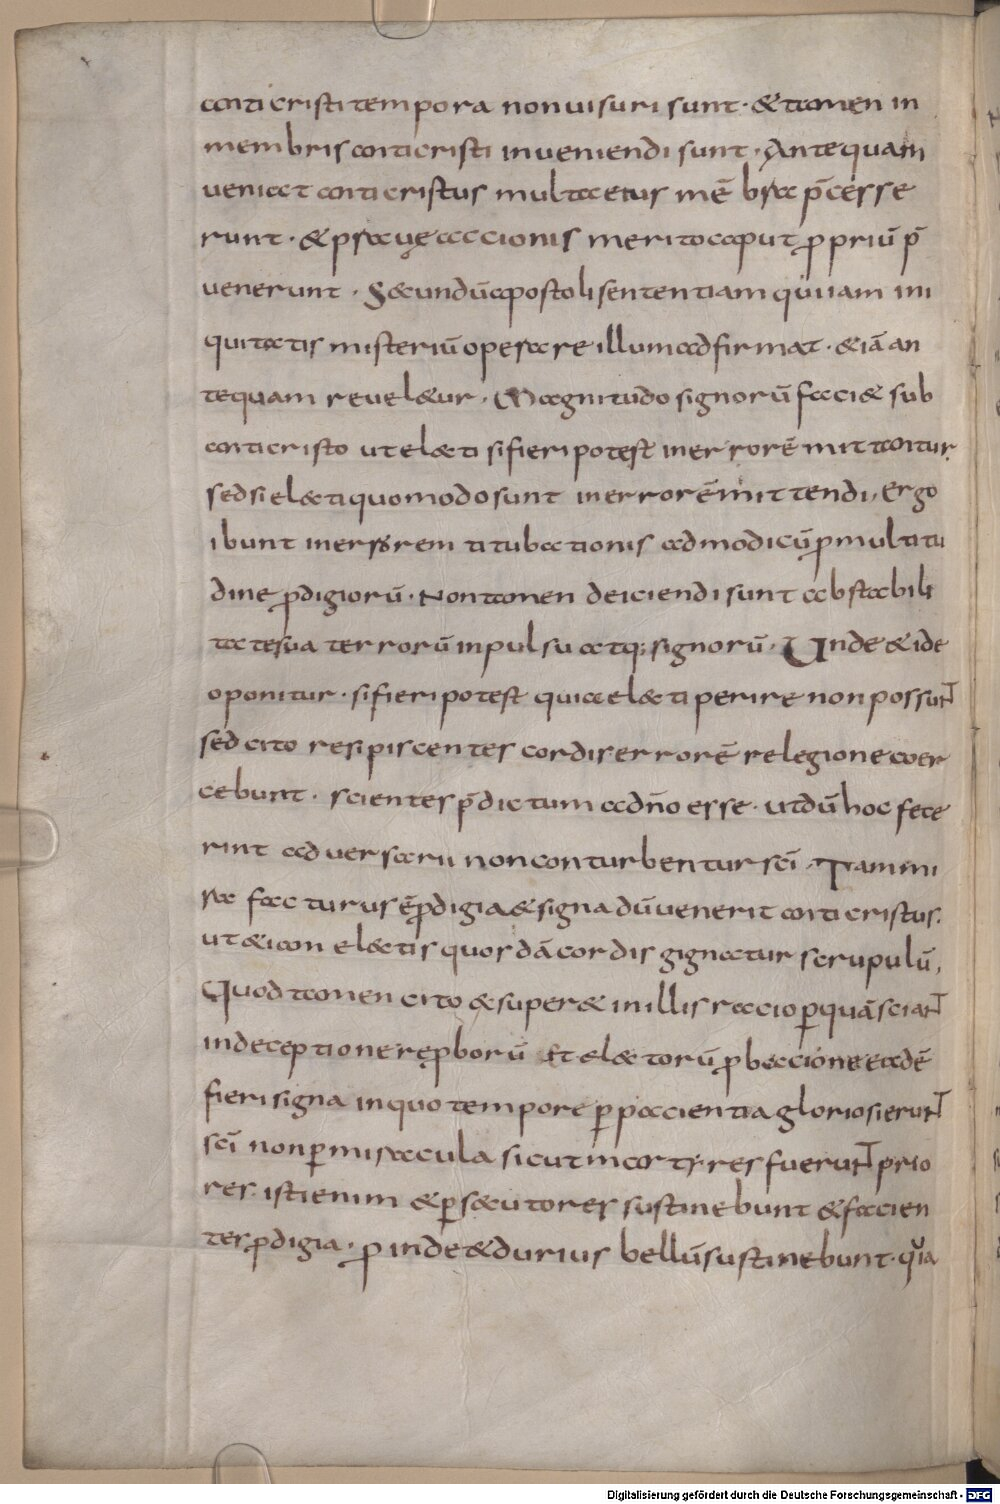 anticristi tempora non uisuri sunt · & tamen in
membris anticristi inueniendi sunt · Antequam
ueniat anticristus multa eius mē bra p̄cesse
runt · & prauę accionis merito caput ppriū p̄
uenerunt · Secundū apostoli sententiam qui iam ini
quitatis misteriū operare illum adfirmat · & iā an
tequam reuel&ur · Magnitudo signorū faci& sub
anticristo ut elæti si fieri potest in errorē mittantur
sed si elæti quomodo sunt in errorē mittendi, ergo
ibunt in errorem titubationis ad modicū p multitu
dine pdigiorū · Non tamen deiciendi sunt ab stabili
tate sua terrorū inpulsu atq; signorū · Unde & ide
oponitur · si fieri potest quia elæti perire non possunt
sed cito resipiscentes cordis errorē relegione coer
cebunt · scientes p̄dictum a dn̄o esse · ut dū hoc fece
rint aduersarii non conturbentur sc̄i · Tam mi
ra facturus ē pdigia & signa dū uenerit anticristus.
ut &iam elæctis quosdā cordis gignatur scrupulū,
Quod tamen cito & super& in illis racio p quā sciant
in deceptione repborū Et elætorū pbaccione eadē
fieri signa in quo tempore p pacientia gloriosi erunt
sc̄i non p miracula sicut martyres fuerunt prio
res · isti enim & psæcutores sustinebunt & facien
tes pdigia · pinde & durius bellū sustinebunt · quia
Digitalisierung gefördert durch die Deutsche Forschungsgemeinschaft - DFG